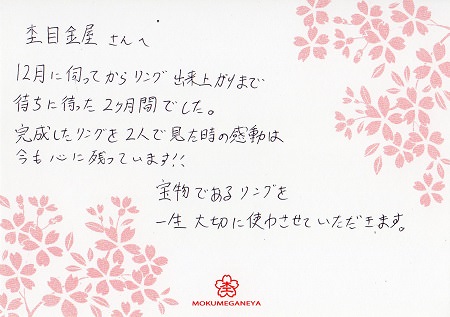 杢目金屋 さんへ
12月に伺ってから リング 出来上がりまで
待ちに待った 2ヶ月間でした。
完成したリングを 2人で見た時の感動は
今も心に残っています!!
宝物であるリングを
一生 大切に使わさせていただきます。
杢
MOKUMEGANEYA